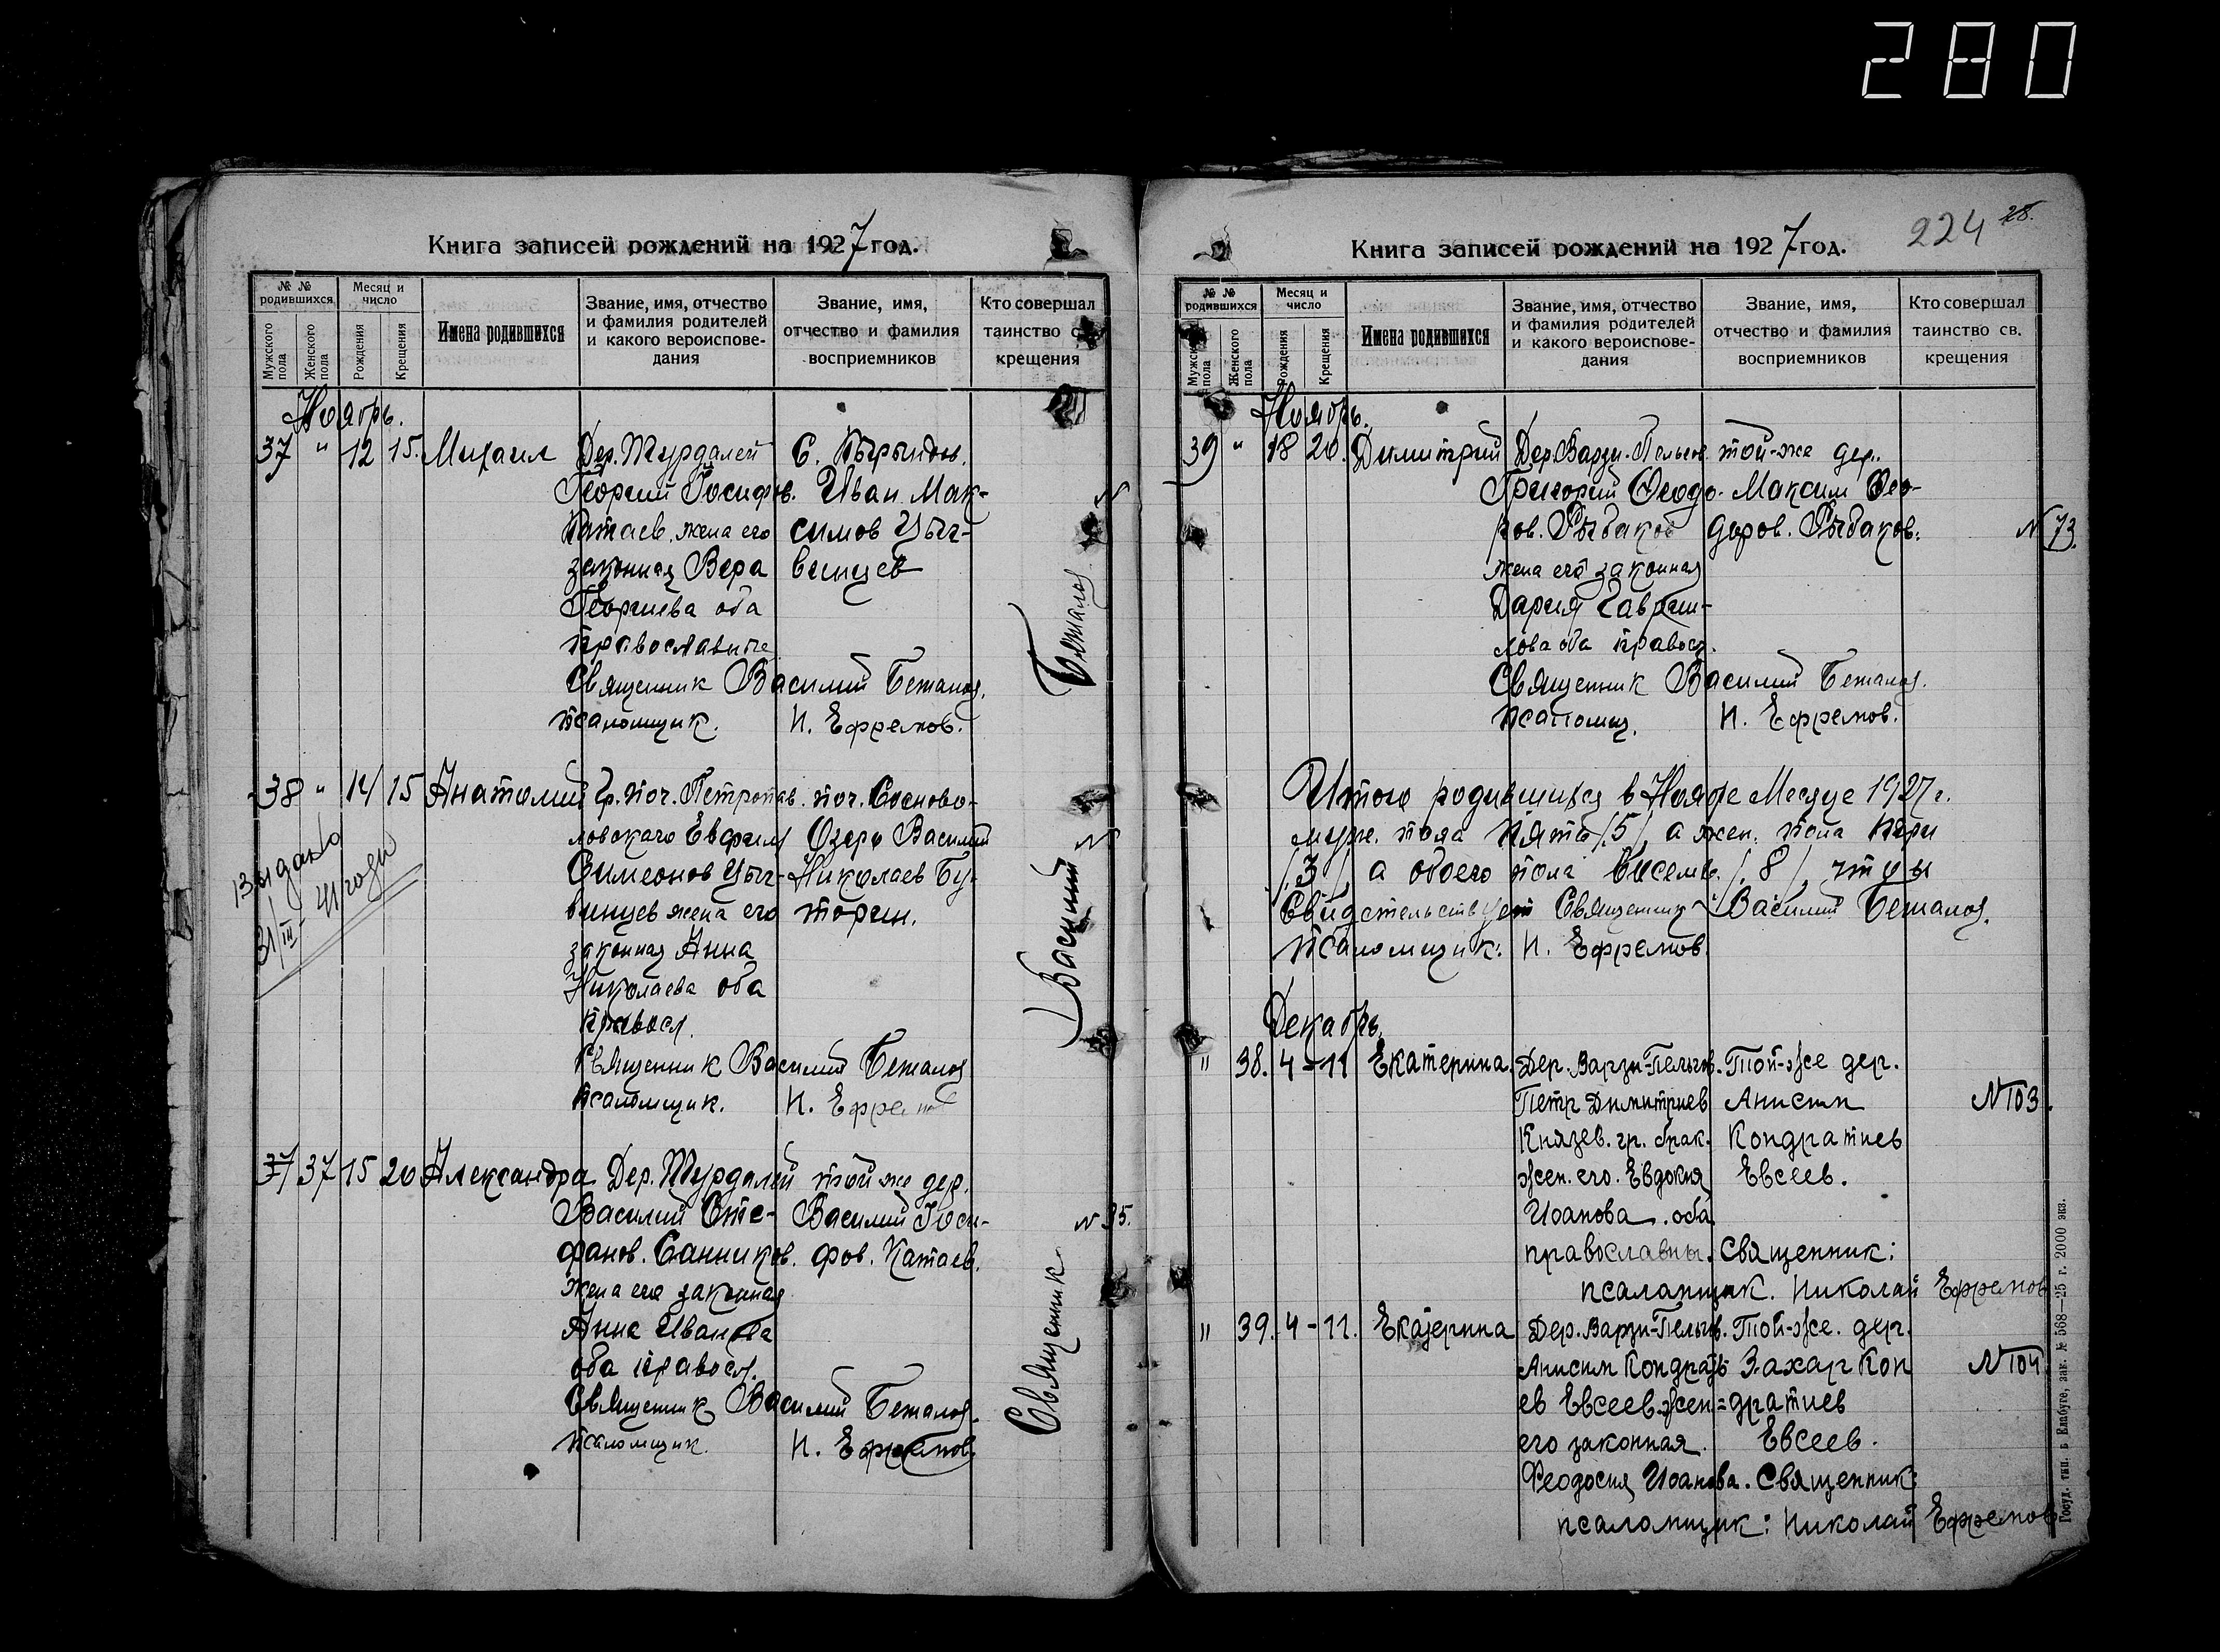 280
Книга записей рождений на 1927 год.
№ № родившихся
Мужского пола
Женского пола
Месяц и число
Рождения
Крещения
Имена родившихся
Звание, имя, отчество и фамилия родителей и какого вероисповедания
Звание, имя, отчество и фамилия восприемников
Кто совершал таинство св. крещения
Ноябрь.
37 " 12 15. Михаил Дер. Турдалей С.
Георгий Иосифов. Иван Мак-
Катаев, жена его симов Цыг-
законная Вера винцев
Георгиева оба
православные
Священник Василий Беталов.
псаломщик. Н. Ефремов.
38 " 14 15 Анатолий Гр. поч. Петропав. поч. Сосново-
ловскаго Евфим Озеро Василий
Симеонов Цыг- Николаев Бу-
винцев жена его торин.
законная Анна
Николаева оба
правосл.
Священник Василий Беталов
псаломщик. Н. Ефремов
Выдано
31/III - 41 года
37 37 15 20 Александра Дер. Турдалей той же дер.
Василий Сте- Василий Иоси-
фанов. Санников. фов. Катаев.
жена его законная
Анна Иванова
оба правосл.
Священник Василий Беталов.
псаломщик. Н. Ефремов.
N 35.
Священник Василий Бяталов
224 28.
Книга записей рождений на 1927 год.
№ № родившихся
Мужск пола
Женского пола
Месяц и число
Рождения
Крещения
Имена родившихся
Звание, имя, отчество и фамилия родителей и какого вероисповедания
Звание, имя, отчество и фамилия восприемников
Кто совершал таинство св. крещения
Ноябрь.
39 " 18 20. Димитрий Дер. Варзи-Пельгов той-же дер.
Григорий Феодо- Максим Фео-
ров. Рыбаков доров. Рыбаков.
N 73.
жена его законная
Дария Гаври-
лова оба правосл.
Священник Василий Беталов.
псаломщ. Н. Ефремов.
Итого родившихся в Ноябре Месяце 1927 г.
муж. пола пять /5/, а жен. пола три
/3/ а обоего пола восемь /8/,
Свидетельствует Священник Василий Беталов.
псаломщик: Н. Ефремов.
Декабрь.
" 38. 4 - 11 Екатерина. Дер. Варзи-Пельгов. Той-же дер.
Петр Димитриев Анисим
N 103.
Князев. гр. брак. Кондратиев
жен. его. Евдокия Евсеев.
Иоанова. оба
православны. Священник:
псаломщик. Николай Ефремов
" 39. 4 - 11. Екатерина Дер. Варзи-Пельгов. Той-же. дер.
Анисим Кондрать- Захар Кон
N 104
ев Евсеев жен= дратиев
его законная. Евсеев.
Феодосия Иоанова. Священник:
псаломщик: Николай Ефремов
Госуд. тип. в Елабуге, зак. № 568—25 г. 2000 экз.